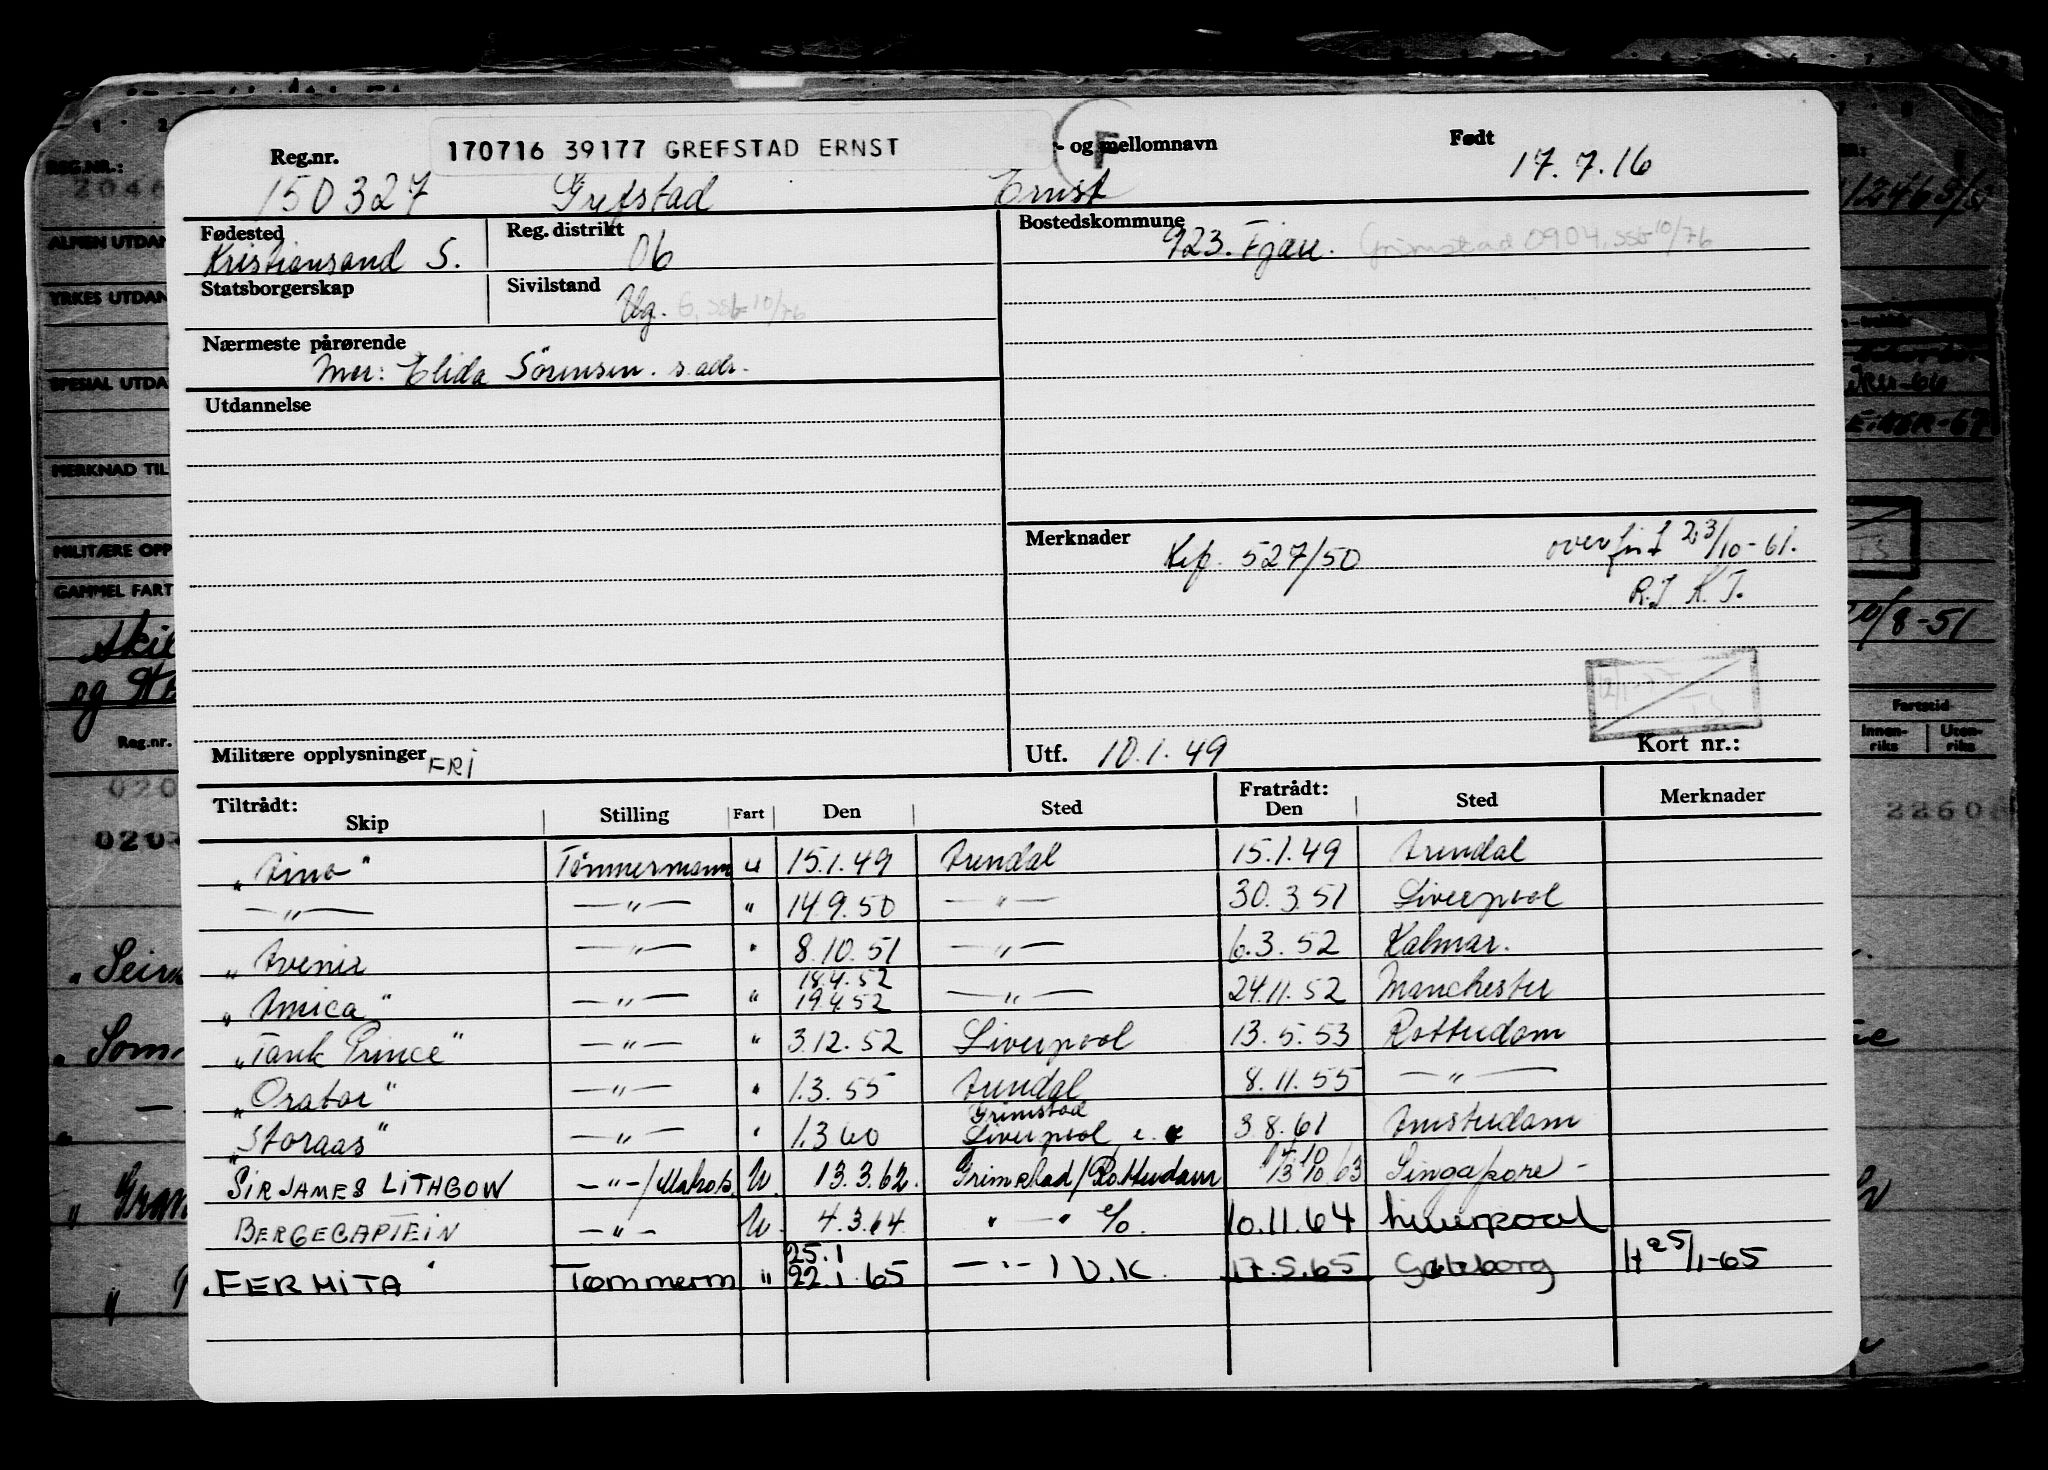 Reg.nr. 170716 39177 GREFSTAD ERNST F - og mellomnavn Født
150327 Grefstad Ernst 17.7.16
Fødested Reg. distrikt Bostedskommune
Kristiansand S. 06 923. Fjære. Grimstad 0904, SSb 10/76
Statsborgerskap Sivilstand
Ug. G, SSb 10/76
Nærmeste pårørende
Mor: Elida Sörensen. s. adr.
Utdannelse
Merknader Kif. 527/50 overført 23/10-61.
R.T K.T.
Militære opplysninger FRI Utf. 10.1.49 Kort nr.:
Tiltrådt: Fratrådt:
Skip Stilling Fart Den Sted Den Sted Merknader
"Aino" Tømmermann u 15.1.49 Arendal 15.1.49 Arendal
—"— —"— " 14.9.50 —"— 30.3.51 Liverpool
"Avenir —"— " 8.10.51 —"— 6.3.52 Kalmar.
18.4.52
"Amica" —"— " 19.4.52 —"— 24.11.52 Manchester
"Tank Prince" —"— " 3.12.52 Liverpool 13.5.53 Rotterdam
"Orator" —"— " 1.3.55 Arendal 8.11.55 —"—
Grimstad
"Storaas" —"— " 1.3.60 Liverpool 3.8.61 Amsterdam
SIR JAMES LITHGOW —"—/Matros. U. 13.3.62. Grimstad/Rotterdam 13/10 63 Singapore -
BERGECAPTEIN —"— U. 4.3.64. " — " 10.11.64 Liverpool
25.1
"FERMITA" Tømmerm " 22.1.65 —"— / V.K. 17.5.65 Gøteborg H 25/1-65
REG.NR.:
ALMEN UTDAN
YRKES UTDAN
SPESIAL UTDA
MERKNAD TIL
MILITÆRE OPP
GAMMEL FART
og
Reg.nr.
020
10/8-51
Fartstid
Innen-riks Uten-riks
22608